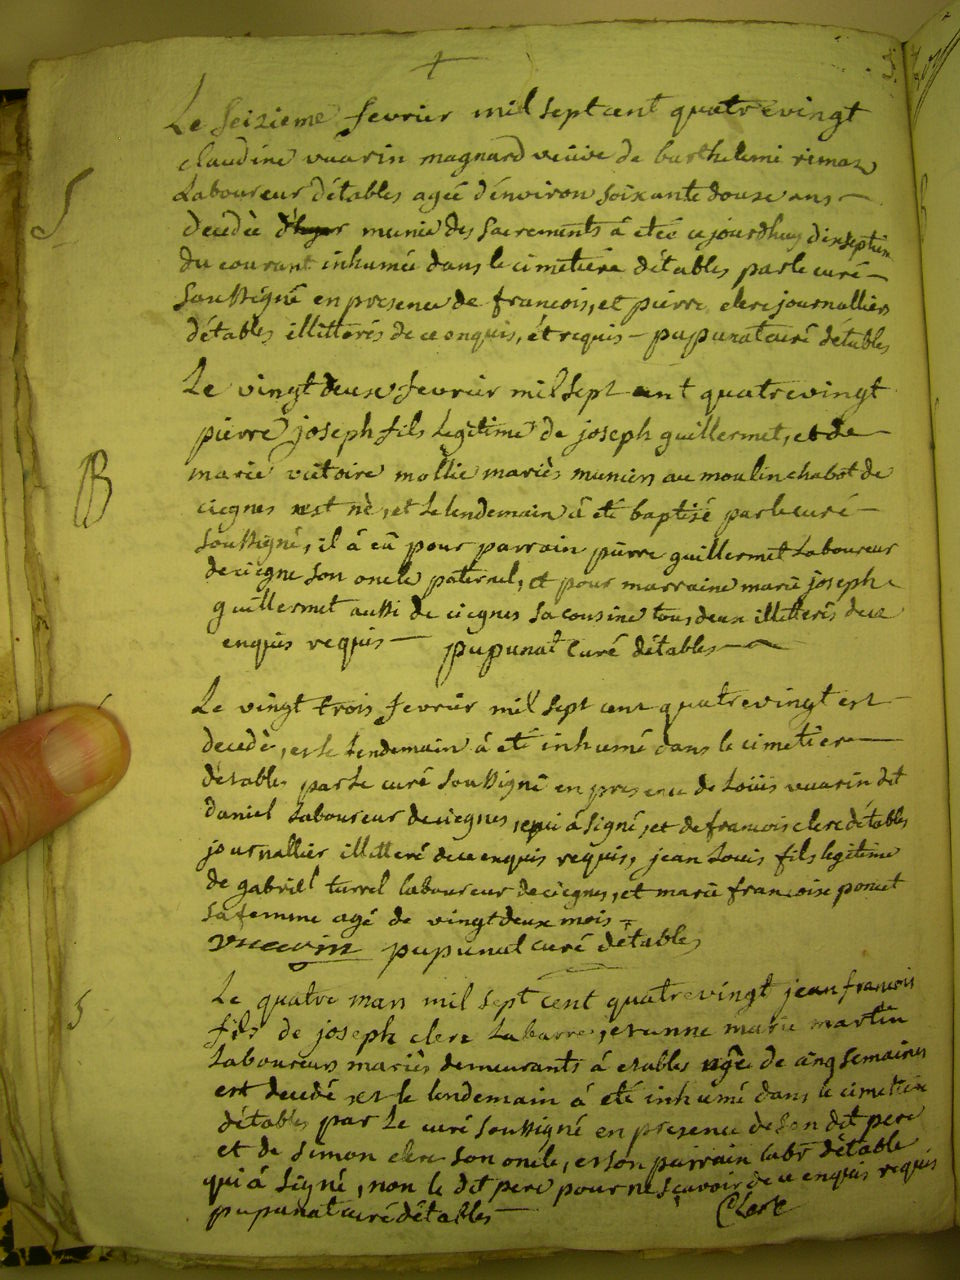 Le seizieme fevrier mil sept cent quatrevingt
claudine vuarin magnard veuve de barthelemi rimaz
Laboureur détables agée dénviron soixante douze ans
decedée munie des sacrements á etée cejourdhuy dixseptiem
du courant inhumée dans le cimetiere détables par le curé
soussigné en presence de francois, et pierre clerc journallier
détables illitterés de ce enquis, ét requis – pupunat curé détables
Le vingt deux fevrier mil sept cent quatrevingt
pierre joseph fils Legitime de joseph guillermet, et de
marie victoire mollie mariés muniers au moulin chabot de
ciegnes est né, et le lendemain á eté baptisé par le curé
soussigné, il á eû pour parrain pierre guillermet Laboureur
de ciegne son oncle paternel, et pour marraine marie joseph
guillermet aussi de ciegnes sa cousine tous deux illitterés de ce
enquis requis — pupunat Curé détables
Le vingt trois fevrier mil sept cent quatrevingt est
decedé, et le lendemain á eté inhumé dans le cimetiere
détables par Le curé soussigné en presence de Loüis vuarin dit
daniel Laboureur de ciegnes, qui á signé, et de francois clerc détables
journallier illitteré de ce enquis requis, jean Louis fils legitime
de gabriel turrel laboureur de ciegnes, et marie francoise poncet
sa femme agé de vingt deux mois
vuarin pupunat curé détables
S
B
S
Le quatre mars mil sept cent quatrevingt jean francois
fils de joseph clerc Labarre, et anne marie martin
Laboureurs mariés demeurants á etables agé de cinq semaines
est decedé et le lendemain á eté inhumé dans le cimetiere
détables par Le curé soussigné en presence de son dit pere
et de simon clerc son oncle, et son parrain labr détable
qui á signé, non le dit pere pour ne sçavoir de ce enquis requis
pupunat curé détables — Clerc